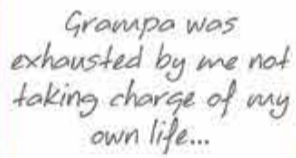 Grampa was
exhausted by me not
taking charge of my
own life...